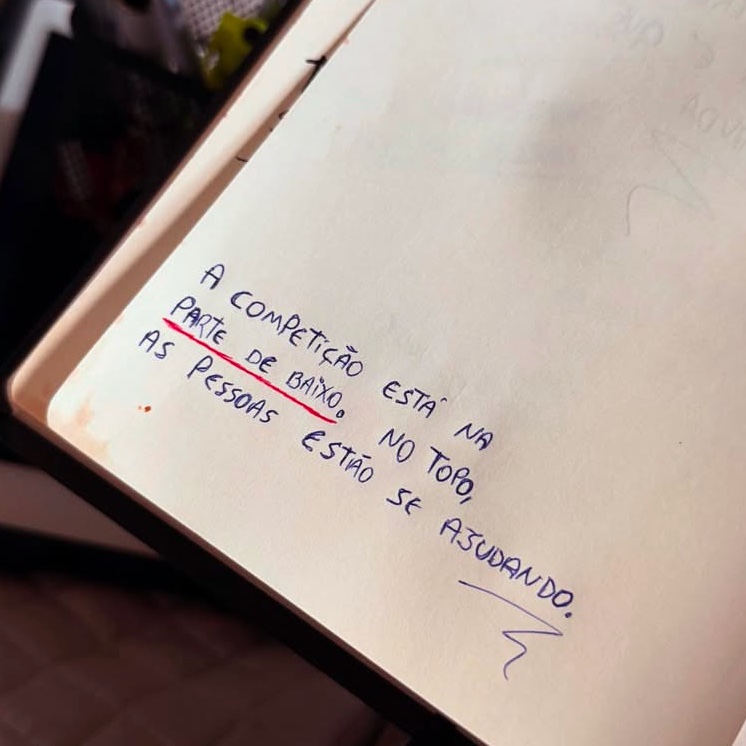 A COMPETIÇÃO ESTÁ NA
PARTE DE BAIXO. NO TOPO,
AS PESSOAS ESTÃO SE AJUDANDO.